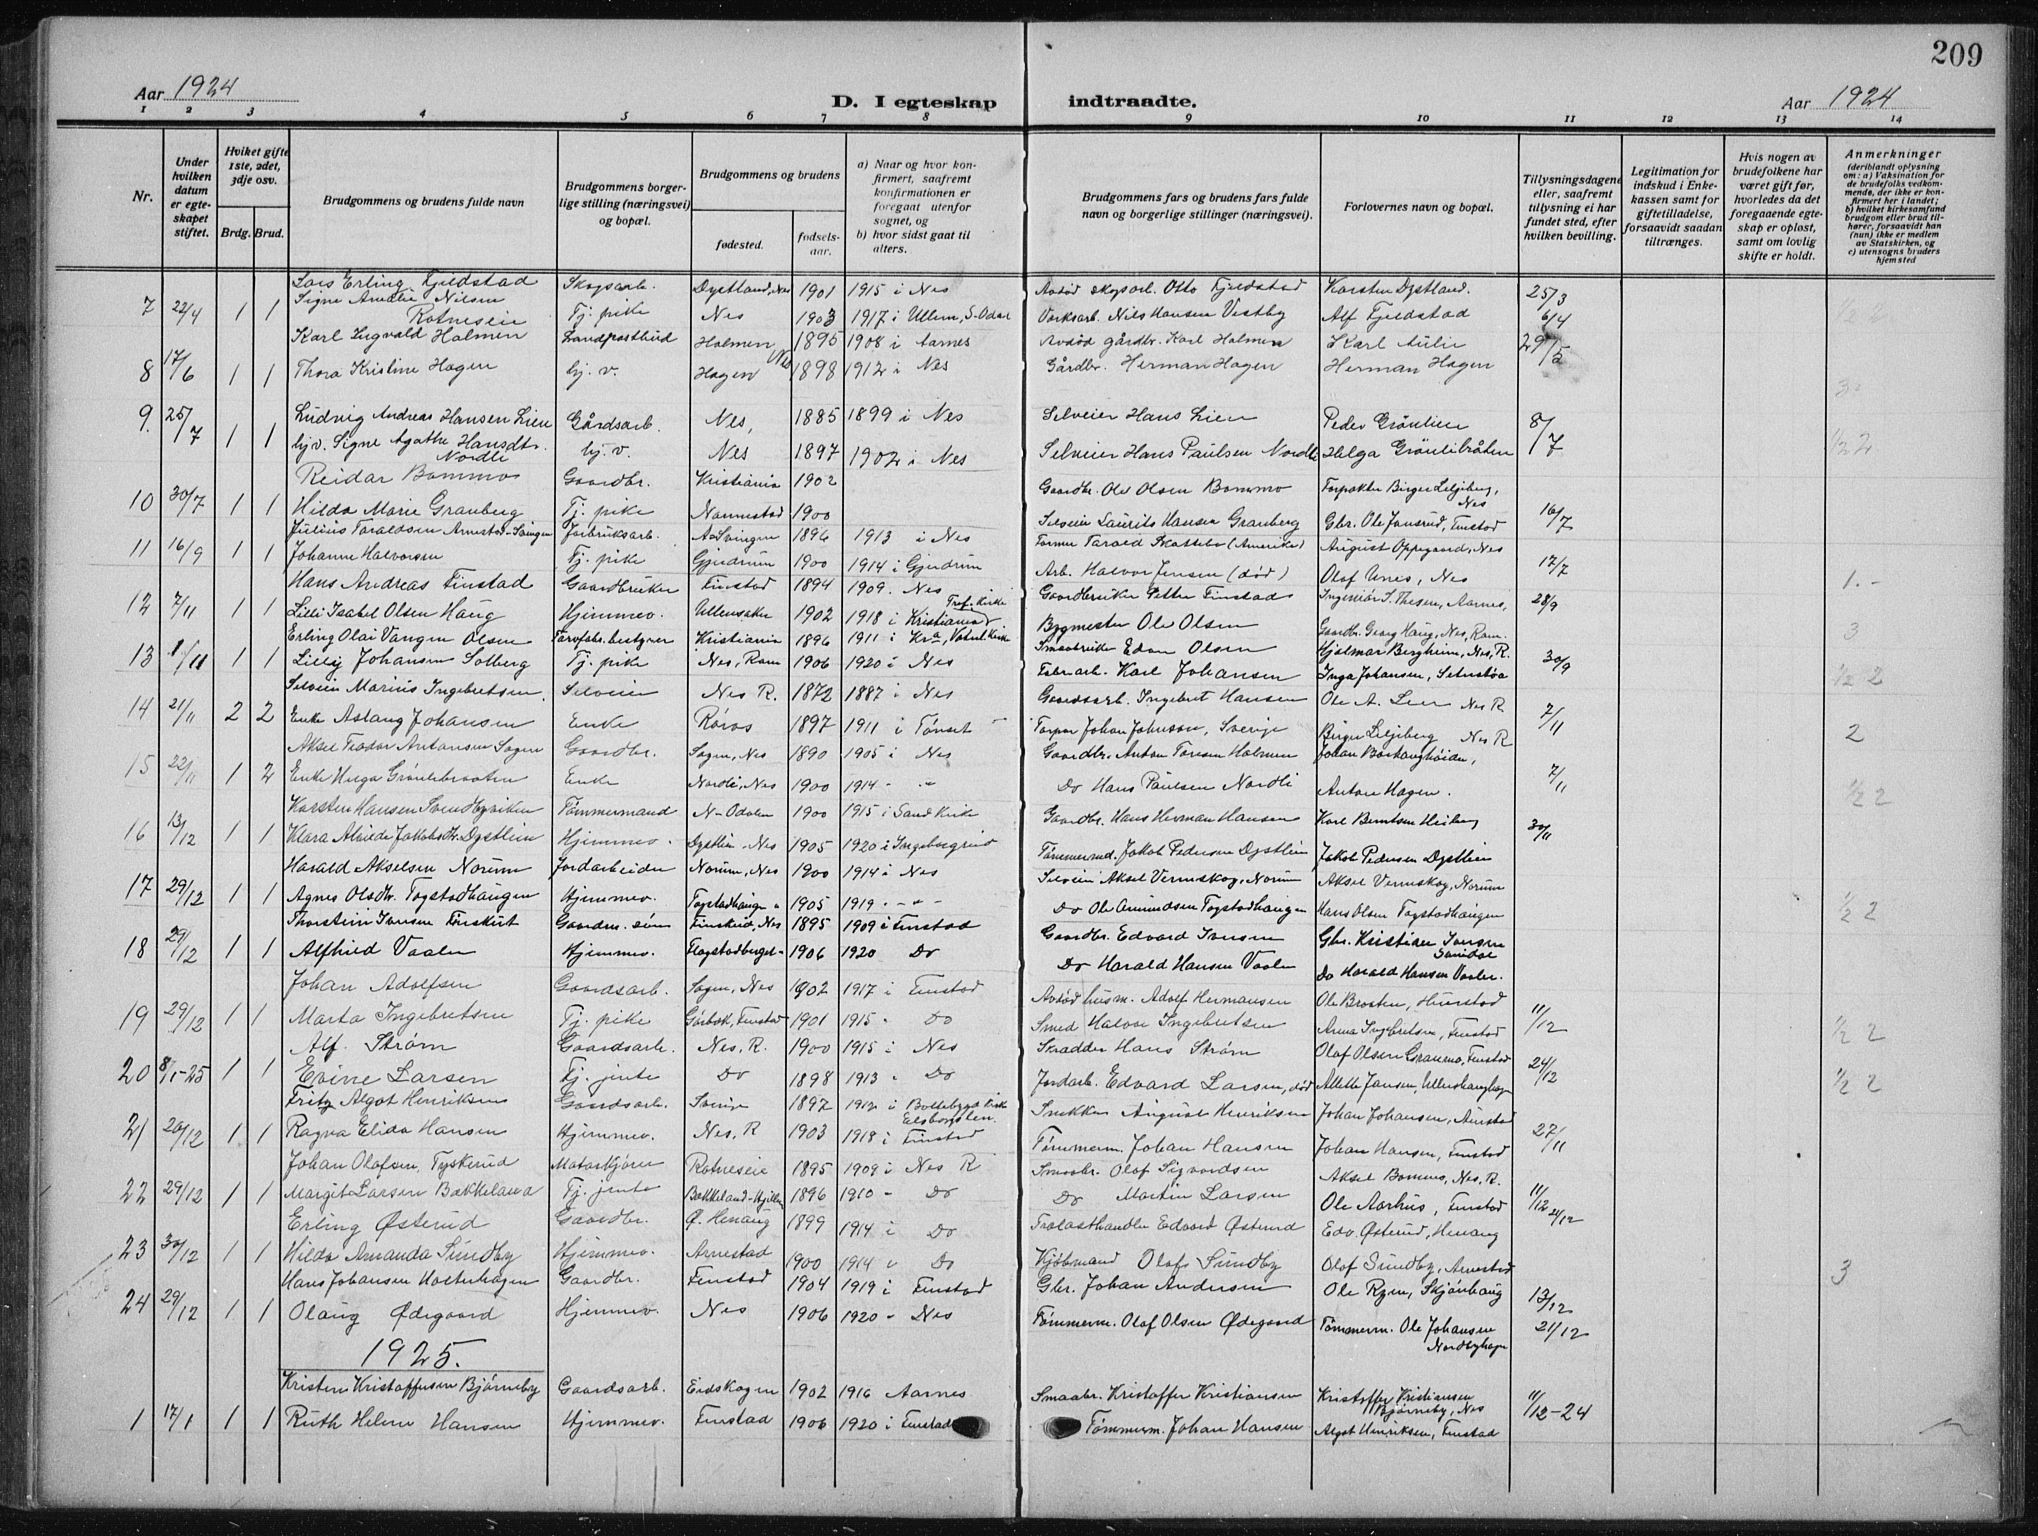 209
Aar 1924
D. I egteskap indtraadte.
Aar 1924
1 2 3 4 5 6 7 8 9 10 11 12 13 14
Nr.
Under hvilken datum er egteskapet stiftet.
Hviket gifte 1ste, 2det, 3dje osv.
Brdg. Brud.
Brudgommens og brudens fulde navn
Brudgommens borgerlige stilling (næringsvei) og bopæl.
Brudgommens og brudens
fødested.
fødselsaar.
a) Naar og hvor konfirmert, saafremt konfirmationen er foregaat utenfor sognet, og
b) hvor sidst gaat til alters.
Brudgommens fars og brudens fars fulde navn og borgerlige stillinger (næringsvei).
Forlovernes navn og bopæl.
Tillysningsdagene eller, saafremt tillysning ei har fundet sted, efter hvilken bevilling.
Legitimation for indskud i Enkekassen samt for giftetilladelse, forsaavidt saadan tiltrænges.
Hvis nogen av brudefolkene har været gift før, hvorledes da det foregaaende egteskap er opløst, samt om lovlig skifte er holdt.
Anmerkninger
(deriblandt oplysning om: a) Vaksination for de brudefolks vedkommende, der ikke er konfirmert her i landet; b) hvilket kirkesamfund brudgom eller brud tilhører, forsaavidt han (hun) ikke er medlem av Statskirken, og c) utensogns bruders hjemsted
Lars Erling Fjeldstad Skogsarb. Dystland, Nes 1901 1915 i Nes Avdød skogsarb. Otto Fjeldstad Karsten Dystland. 25/3
7 22/4 1 1 Signe Amalie Nilsen Rotneseie Tj. pike Nes 1903 1917 i Ullern, S-Odal Verksarb. Nils Hansen Vestby Alf Fjeldstad 6/4
Karl Ingvald Holmen Landpostbud Holmen 1895 1908 i Aarnes Avdød gårdbr. Karl Holmen Karl Aulie 29/5
8 17/6 1 1 Thora Kristine Hagen hj. v. Hagen Nes 1898 1912 i Nes Gårdbr. Herman Hagen Herman Hagen 3
9. 25/7 1 1 Ludvig Andreas Hansen Lien Gårdsarb. Nes, 1885 1899 i Nes Selveier Hans Lien Peder Grönlien 8/7
hjv. Signe Agathe Hansdtr. Nordli hj. v. Nes 1897 1902 i Nes Selveier Hans Paulsen Nordli Helga Grönlibråten 1/2 2
Reidar Bommo Gaardbr. Kristiania 1902 Gaardbr. Ole Olsen Bommo Forpakter Birger Liljeberg, Nes
10 30/7 1 1 Hilda Marie Granberg Tj. pike Nannestad 1900 Selveier Laurits Hansen Granberg Gbr. Ole Jansrud, Finstad 16/7
Julius Taraldsen Arnestad-Svingen Jorbruksarb. A-Svingen 1896 1913 i Nes Former Tarald Skatteba (Amerika) August Oppegaard, Nes
11 16/9 1 1 Johanne Halvorsen Tj. pike Gjerdrum 1900 1914 i Gjerdrum Arb. Halvor Jensen (død) Olaf Unes, Nes 17/7
Hans Andreas Finstad Gaardbruker Finstad 1894 1909. Nes Gaardbruker Petter Finstad Ingeniør S. Thesen, Aarnes, 1.-
12 7/11 1 1 Lilli Isabel Olsen Haug Hjemmev. Ullensaker 1902 1918 i Kristiania Tref. Kirke Bygmester Ole Olsen Gaardbr. Georg Haug, Nes, Rom. 28/9
Erling Olai Vangen Olsen Farvfabr. bestyrer Kristiania 1896 1911 i Kra, Vaterl. Kirke Smaabruker Edon Olsen Hjalmar Bergheim, Nes, R. 3
13 1/11 1 1 Lilly Johansen Solberg Tj. pike Nes, Rom 1906 1920 i Nes Fabrarb. Karl Johansen Inga Johansen, Seterstøa 30/9 1/2 2
Selveier Marius Ingebretsen. Selveier Nes R. 1872 1887 i Nes Gaardsarb. Ingebret Hansen Ole A. Lier Nes R
14 21/11 2 2 Enke Aslaug Johansen Enke Røros 1897 1911 i Tønset Torpar Johan Johnsson, Sverige Birger Liljeberg Nes R 7/11 2
Aksel Teodor Antonsen Sagen Gaardbr. Sagen, Nes 1890 1905 i Nes Gaardbr. Anton Toresen Holmen Johan Borkenghöiden,
15 22/11 1 2 Enke Helga Grönlibraaten Enke Nordli, Nes 1900 1914 - " Do Hans Paulsen Nordli Anton Hagen. 7/11 1/2 2
Karsten Hansen Svendbyviken Tømmermand N-Odalen 1900 1915 i Sand Kirke Gaardbr. Hans Herman Hansen Karl Berntsen Heiberg
16 13/12 1 1 Klara Alvida Jakobsdtr. Dystlein Hjemmev. Dystlein - Nes 1905 1920 i Ingeborgrud Tømmermd. Jakob Pedersen Dystlein Jakob Pedersen Dystlein 30/11
Harald Akselsen Norum Jordarbeider Norum, Nes 1900 1914 i Nes Selveier Aksel Vermskog, Norum Aksel Vermskog, Norum
17 29/12 1 1 Agnes Olsdtr. Togstadhaugen Hjemmev. Togstadhaugen " 1905 1919 - " - Do Ole Amundsen Togstadhaugen Hans Olsen Togstadhaugen 1/2 2
Thorstein Iversen Finskut Gaardm. søn Finskud, Nes 1895 1909 i Finstad Gaardbr. Edvard Iversen Gbr. Kristian Iversen
18 29/12 1 1 Alfhild Vaaler Hjemmev. Flagstadberget- 1906 1920 Do Do Harald Hansen Vaaler Do Harald Hansen Vaaler.
Johan Adolfsen Gaardsarb. Sagen, Nes 1902 1917 i Finstad Avdød husm. Adolf Hermansen Ole Brosten, Huerstad
19 29/12 1 1 Marta Ingebretsen Tj. pike Gårbak, Finstad 1901 1915 - Do Smed Halvor Ingebretsen Anna Ingebretsen, Finstad 11/12 1/2 2
Alf. Strøm Gaardsarb. Nes, R. 1900 1915 i Nes Skrædder Hans Strøm Olaf Olsen Granmo, Finstad
20 8/1-25 1 1 Evine Larsen Tj. jente Do 1898 1913 - Do Jordarb. Edvard Larsen, død Allette Jansen, Ullershaughagen 24/12 1/2 2
Fritz Algot Henriksen Gaardsarb. Sverige 1897 1912 i Bottebygd Kirke Elsborgslen. Snekker August Henriksen Johan Johansen, Aurstad
21 20/12 1 1 Ragna Elida Hansen Hjemmev. Nes, R 1903 1918 i Finstad Tømmerm. Johan Hansen Johan Hansen, Finstad 27/11
Johan Olafsen, Tyskerud Motorkjører Rotneseie 1895 1909 i Nes R Smaabr. Olaf Sigvardsen Aksel Bomens, Nes, R.
22 29/12 1 1 Margit Larsen Bækkeland Tj. jente Bækkeland-Hjellen 1896 1910 - Do Do Martin Larsen Ole Aarhus, Finstad 11/12 21/12
Erling Østerud Gaardbr. Ø. Henaug 1899 1914 i Do Trælasthandler Edvard Østerud Edv. Østerud, Henaug
23 30/12 1 1 Hilda Amanda Sundby Hjemmev. Arnestad 1900 1914 " Do Kjøbmand Olaf Sundby Olaf Sundby, Arnestad 3
Hans Johansen Holterhagen Gaardbr. Finstad 1904 1919 i Finstad Gbr. Johan Andersen Ole Ryen, Skjønhaug
24 29/12 1 1 Olaug Ødegaard Hjemmev. Nes 1906 1920 - Nes Tømmerm. Olaf Olsen Ødegaard Tømmerm. Ole Johansen Nordbyhagen 13/12 21/12
1925.
Kristen Kristoffersen Bjørneby Gaardsarb. Eidskogen 1902 1916 Aarnes Smaabr. Kristoffer Kristiansen Kristoffer Kristiansen Bjørneby, Nes
1 17/1 1 1 Ruth Helene Hansen Hjemmev. Finstad 1906 1920 i Finstad Tømmerm. Johan Hansen Algot Henriksen, Finstad 11/12-24